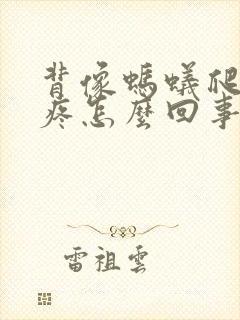 背像螞蟻爬
疼怎麼回事
雷祖雲